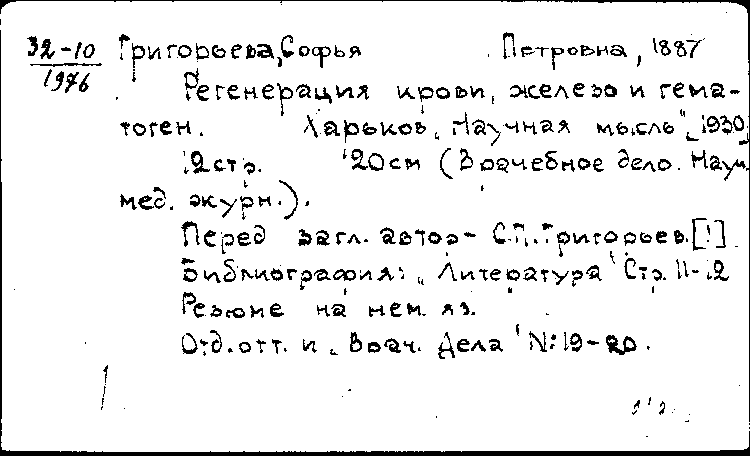 32-10 Григорьева, Софья Петровна, 1887
1976
Регенерация крови, железо и гема-
тоген. Харьков, "Научная мысль", [1930]
12 стр. 20 см (Врачебное дело. Научн.
мед. журн.).
Перед загл. автор - С.П. Григорьев. [!]
Библиография: "Литература" Стр. 11-12
Резюме на нем. яз.
Отд. отт. и "Врач. Дела" №: 19-20.